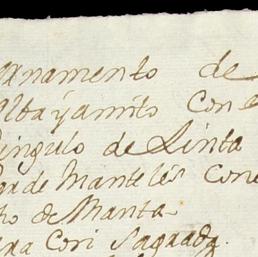 anamento de
Alba y amito Con
Singulo de Sinta
Par de Manteles Con
to de Manta
ara Con Sagrada.